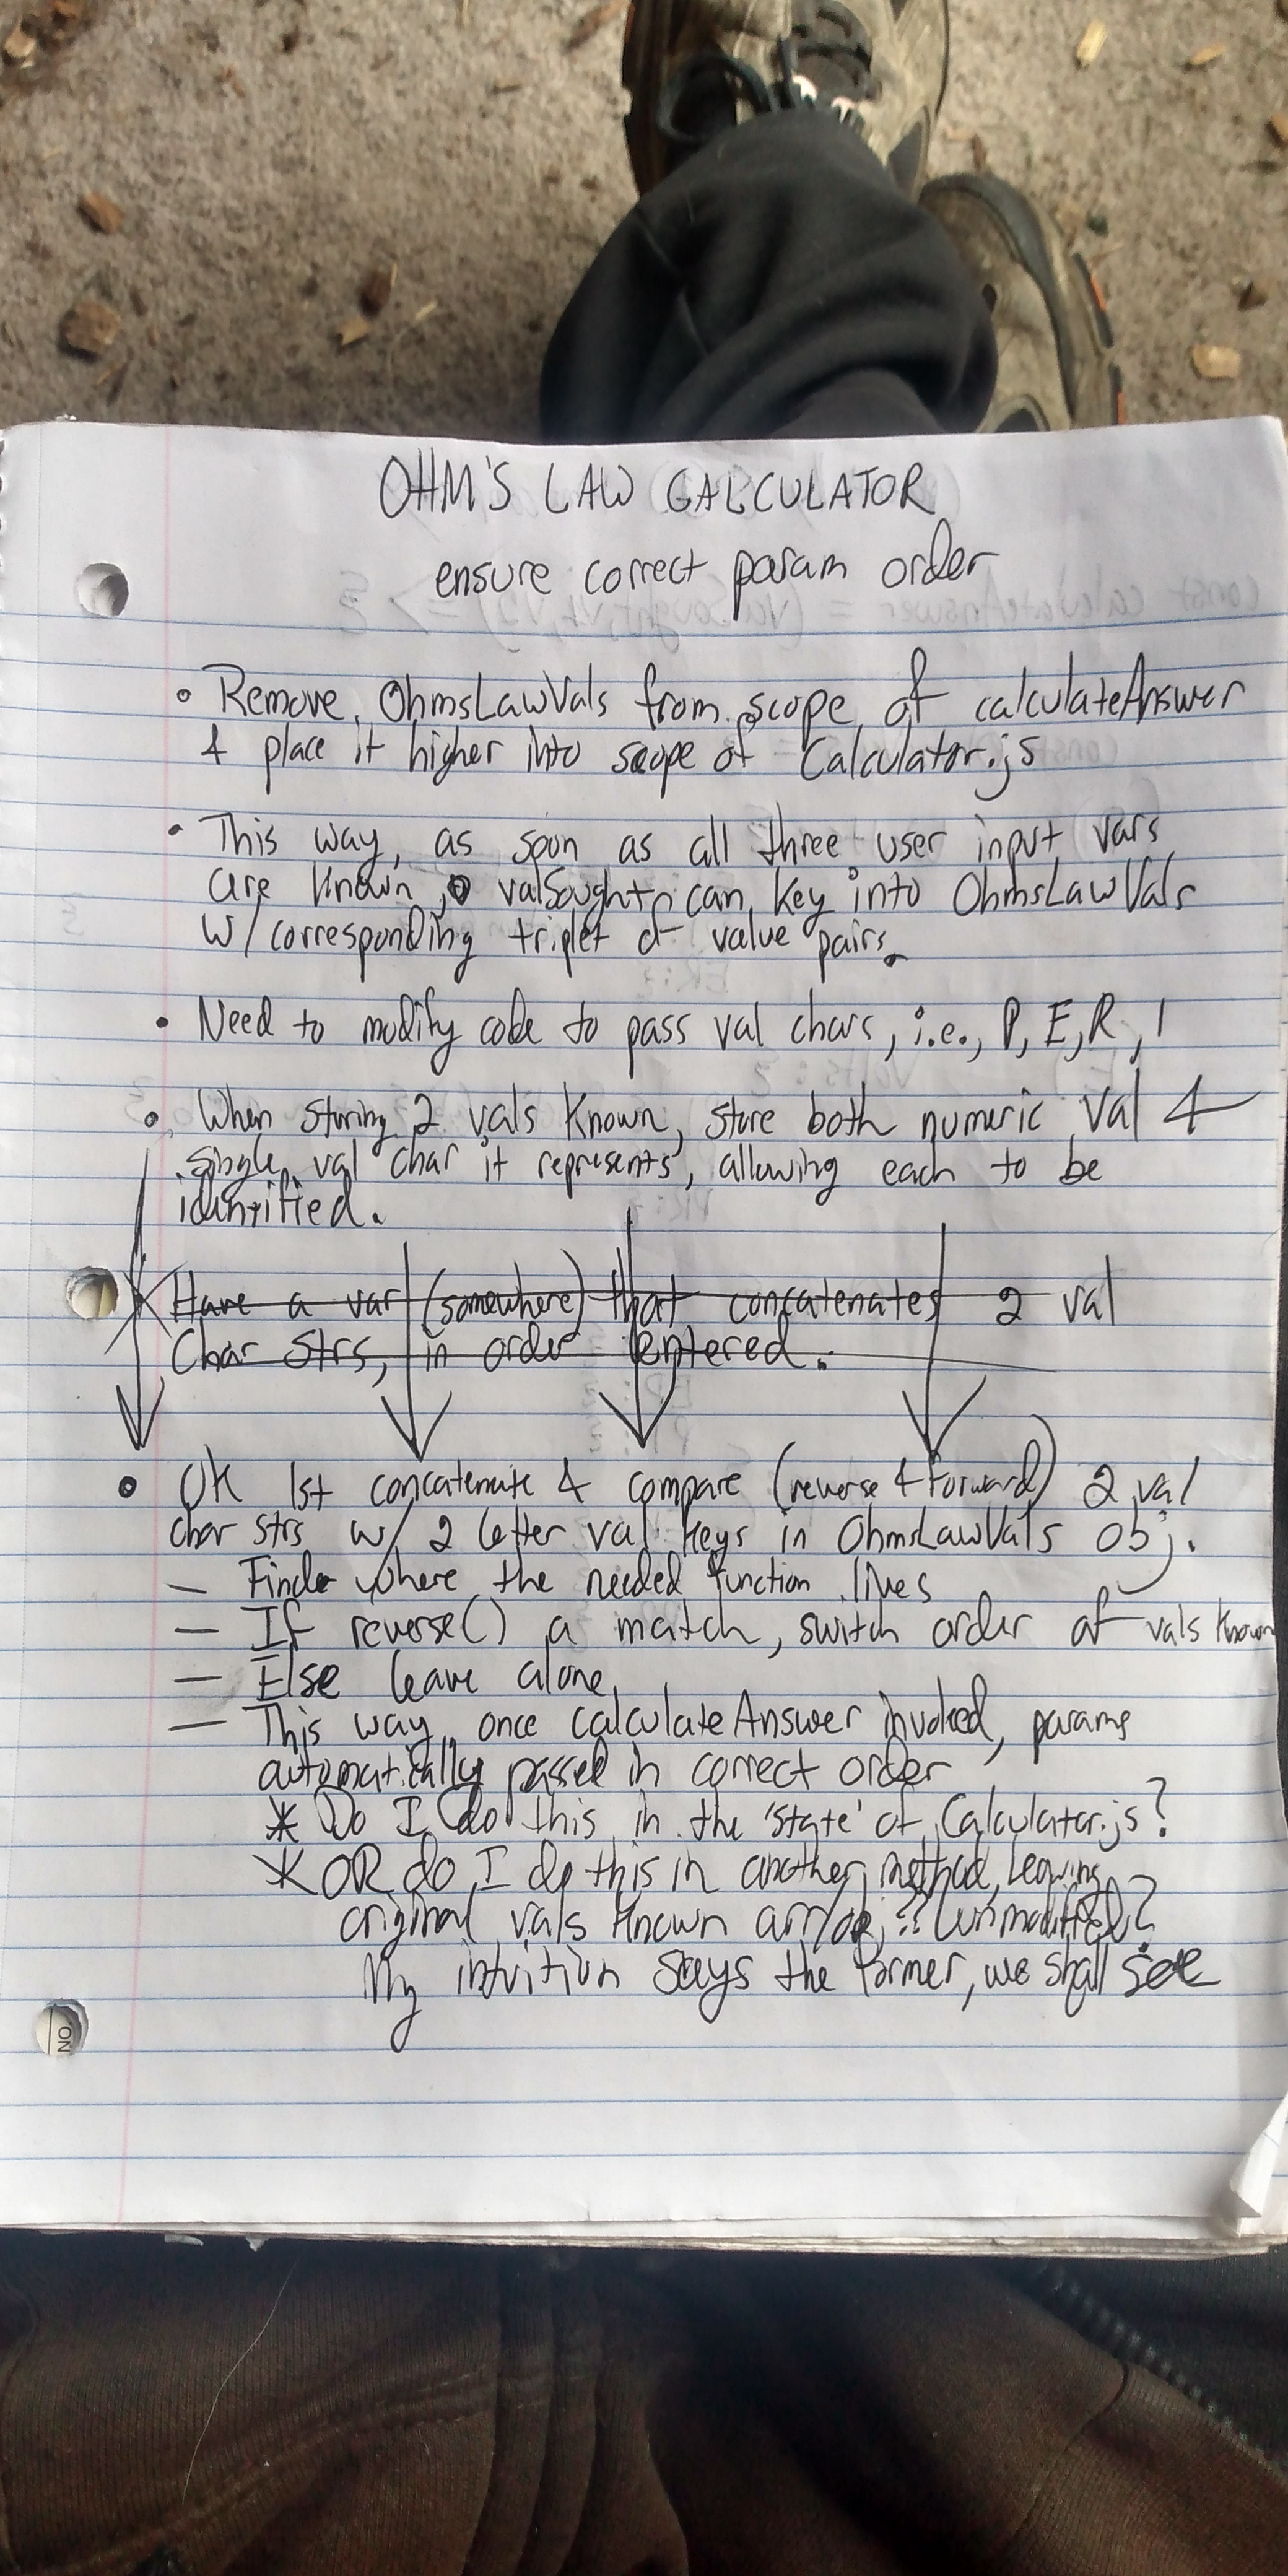 OHM'S LAW CALCULATOR
ensure correct param order
• Remove OhmsLawVals from scope of calculateAnswer
& place it higher into scope of Calculator.js
• This way, as soon as all three user input vars
are known, valSought can key into OhmsLawVals
w/ corresponding triplet of value pairs.
• Need to modify code to pass val chars, i.e., P, E, R, I
• When storing 2 vals known, store both numeric val &
single val char it represents, allowing each to be
identified.
Have a var (somewhere) that concatenates 2 val
char strs, in order entered.
• OK 1st concatenate & compare (reverse & forward) 2 val
char strs w/ 2 letter val keys in OhmsLawVals obj.
— Find where the needed function lives
— If reverse() a match, switch order of vals known
— Else leave alone
— This way, once calculateAnswer invoked, params
automatically passed in correct order
* Do I do this in the 'state' of Calculator.js?
* OR do I do this in another method, leaving
original vals known array unmodified?
My intuition says the former, we shall see
NO